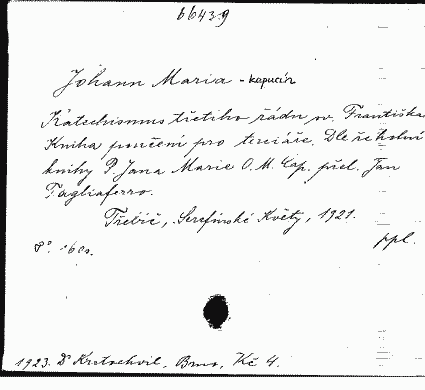 66439
Johann Maria - kapucín
Katechismus třetího řádu sv. Františka
Kniha poučení pro terciáře. Dle řeholní
knihy P. Jana Marie O. M. Cap. přel. Jan
Tagliaferro.
Třebíč, Serafínské Květy, 1921.
8°. 16 cs. ppl.
1923. Dr Kratochvil, Brno, Kč 4.